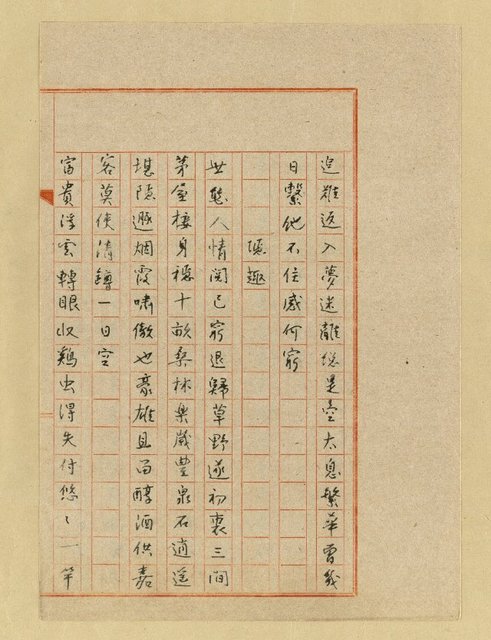 追難返入夢迷離總是空太息繁華曾幾
日繫他不住感何窮
隱趣
世態人情閱已窮退歸草野遂初衷三間
茅屋棲身穩十畝桑林樂歲豐泉石逍遙
堪隱遯烟霞嘯傲也豪雄且留醇酒供嘉
客莫使清罇一日空
富貴浮雲轉眼收鷄虫得失付悠〻一竿